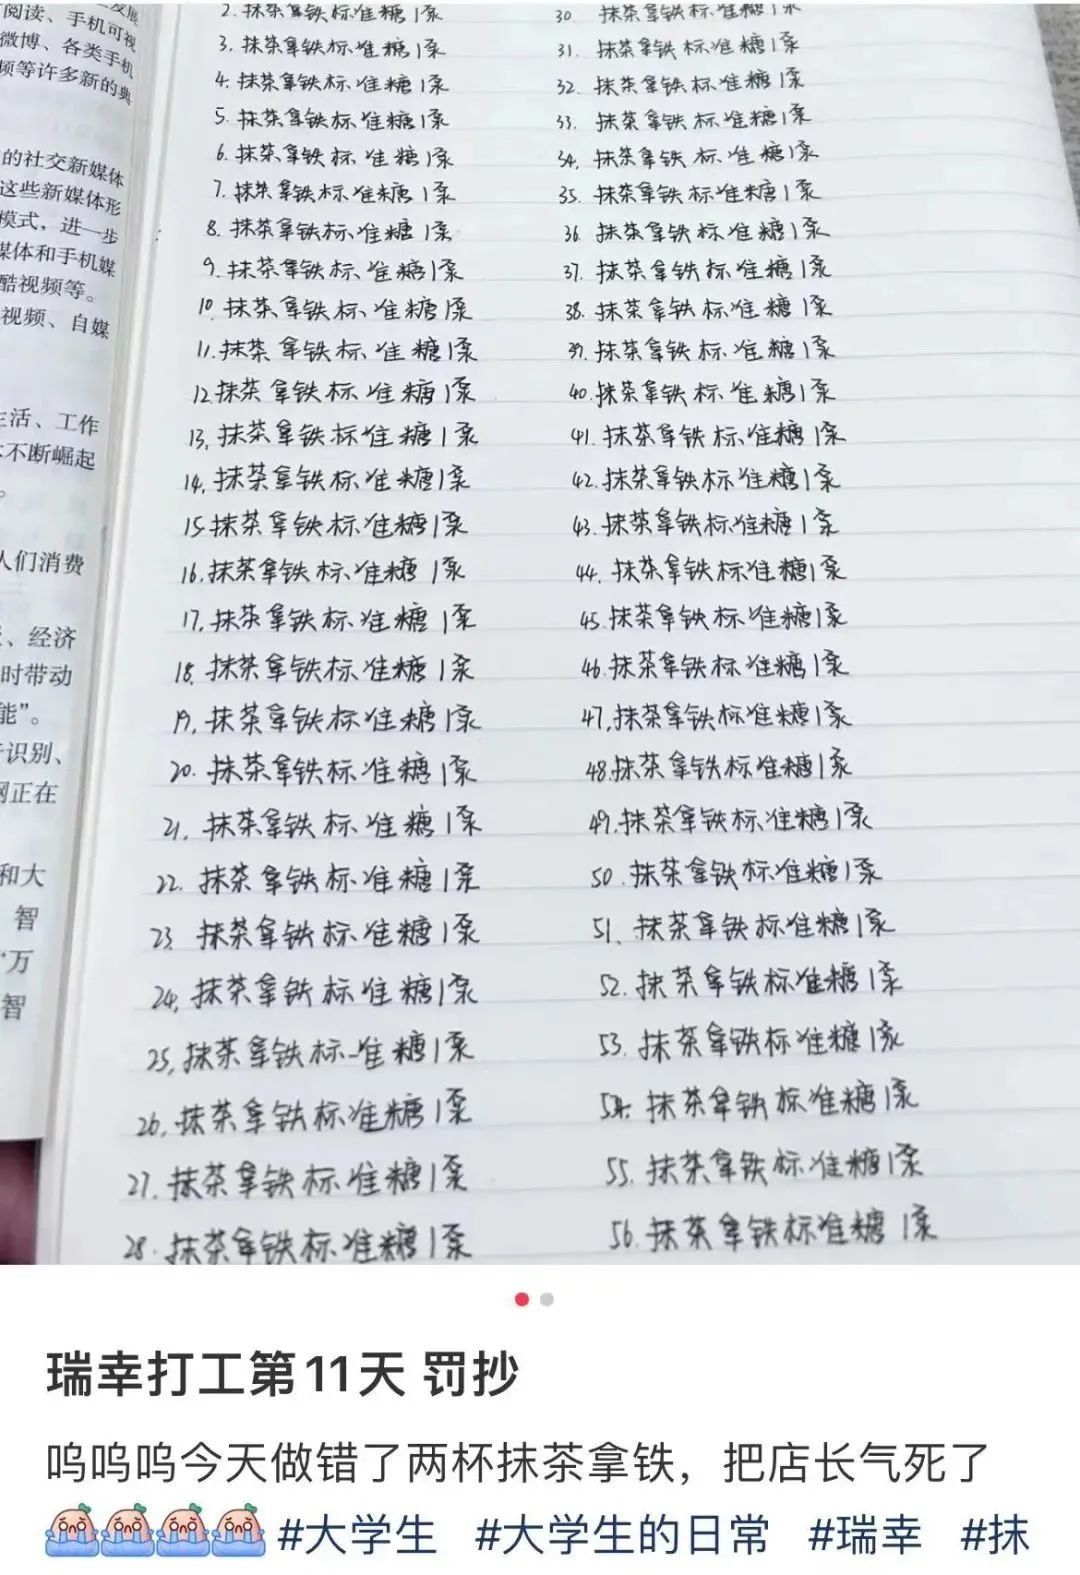 发展
阅读、手机可视
微博、各类手机
频等许多新的典
的社交新媒体
这些新媒体形
模式，进一步
媒体和手机媒
酷视频等。
视频、自媒
生活、工作
不断崛起
。
人们消费
、经济
时带动
能”。
识别、
网正在
和大
智
“万
智
2. 抹茶拿铁标准糖1泵
3. 抹茶拿铁标准糖1泵
4. 抹茶拿铁标准糖1泵
5. 抹茶拿铁标准糖1泵
6. 抹茶拿铁标准糖1泵
7. 抹茶拿铁标准糖1泵
8. 抹茶拿铁标准糖1泵
9. 抹茶拿铁标准糖1泵
10. 抹茶拿铁标准糖1泵
11. 抹茶拿铁标准糖1泵
12. 抹茶拿铁标准糖1泵
13. 抹茶拿铁标准糖1泵
14. 抹茶拿铁标准糖1泵
15. 抹茶拿铁标准糖1泵
16. 抹茶拿铁标准糖1泵
17. 抹茶拿铁标准糖1泵
18. 抹茶拿铁标准糖1泵
19. 抹茶拿铁标准糖1泵
20. 抹茶拿铁标准糖1泵
21. 抹茶拿铁标准糖1泵
22. 抹茶拿铁标准糖1泵
23. 抹茶拿铁标准糖1泵
24. 抹茶拿铁标准糖1泵
25. 抹茶拿铁标准糖1泵
26. 抹茶拿铁标准糖1泵
27. 抹茶拿铁标准糖1泵
28. 抹茶拿铁标准糖1泵
30 抹茶拿铁标准糖1泵
31. 抹茶拿铁标准糖1泵
32. 抹茶拿铁标准糖1泵
33. 抹茶拿铁标准糖1泵
34. 抹茶拿铁标准糖1泵
35. 抹茶拿铁标准糖1泵
36. 抹茶拿铁标准糖1泵
37. 抹茶拿铁标准糖1泵
38. 抹茶拿铁标准糖1泵
39. 抹茶拿铁标准糖1泵
40. 抹茶拿铁标准糖1泵
41. 抹茶拿铁标准糖1泵
42. 抹茶拿铁标准糖1泵
43. 抹茶拿铁标准糖1泵
44. 抹茶拿铁标准糖1泵
45. 抹茶拿铁标准糖1泵
46. 抹茶拿铁标准糖1泵
47. 抹茶拿铁标准糖1泵
48. 抹茶拿铁标准糖1泵
49. 抹茶拿铁标准糖1泵
50. 抹茶拿铁标准糖1泵
51. 抹茶拿铁标准糖1泵
52. 抹茶拿铁标准糖1泵
53. 抹茶拿铁标准糖1泵
54. 抹茶拿铁标准糖1泵
55. 抹茶拿铁标准糖1泵
56. 抹茶拿铁标准糖1泵
瑞幸打工第11天 罚抄
呜呜呜今天做错了两杯抹茶拿铁，把店长气死了
#大学生 #大学生的日常 #瑞幸 #抹